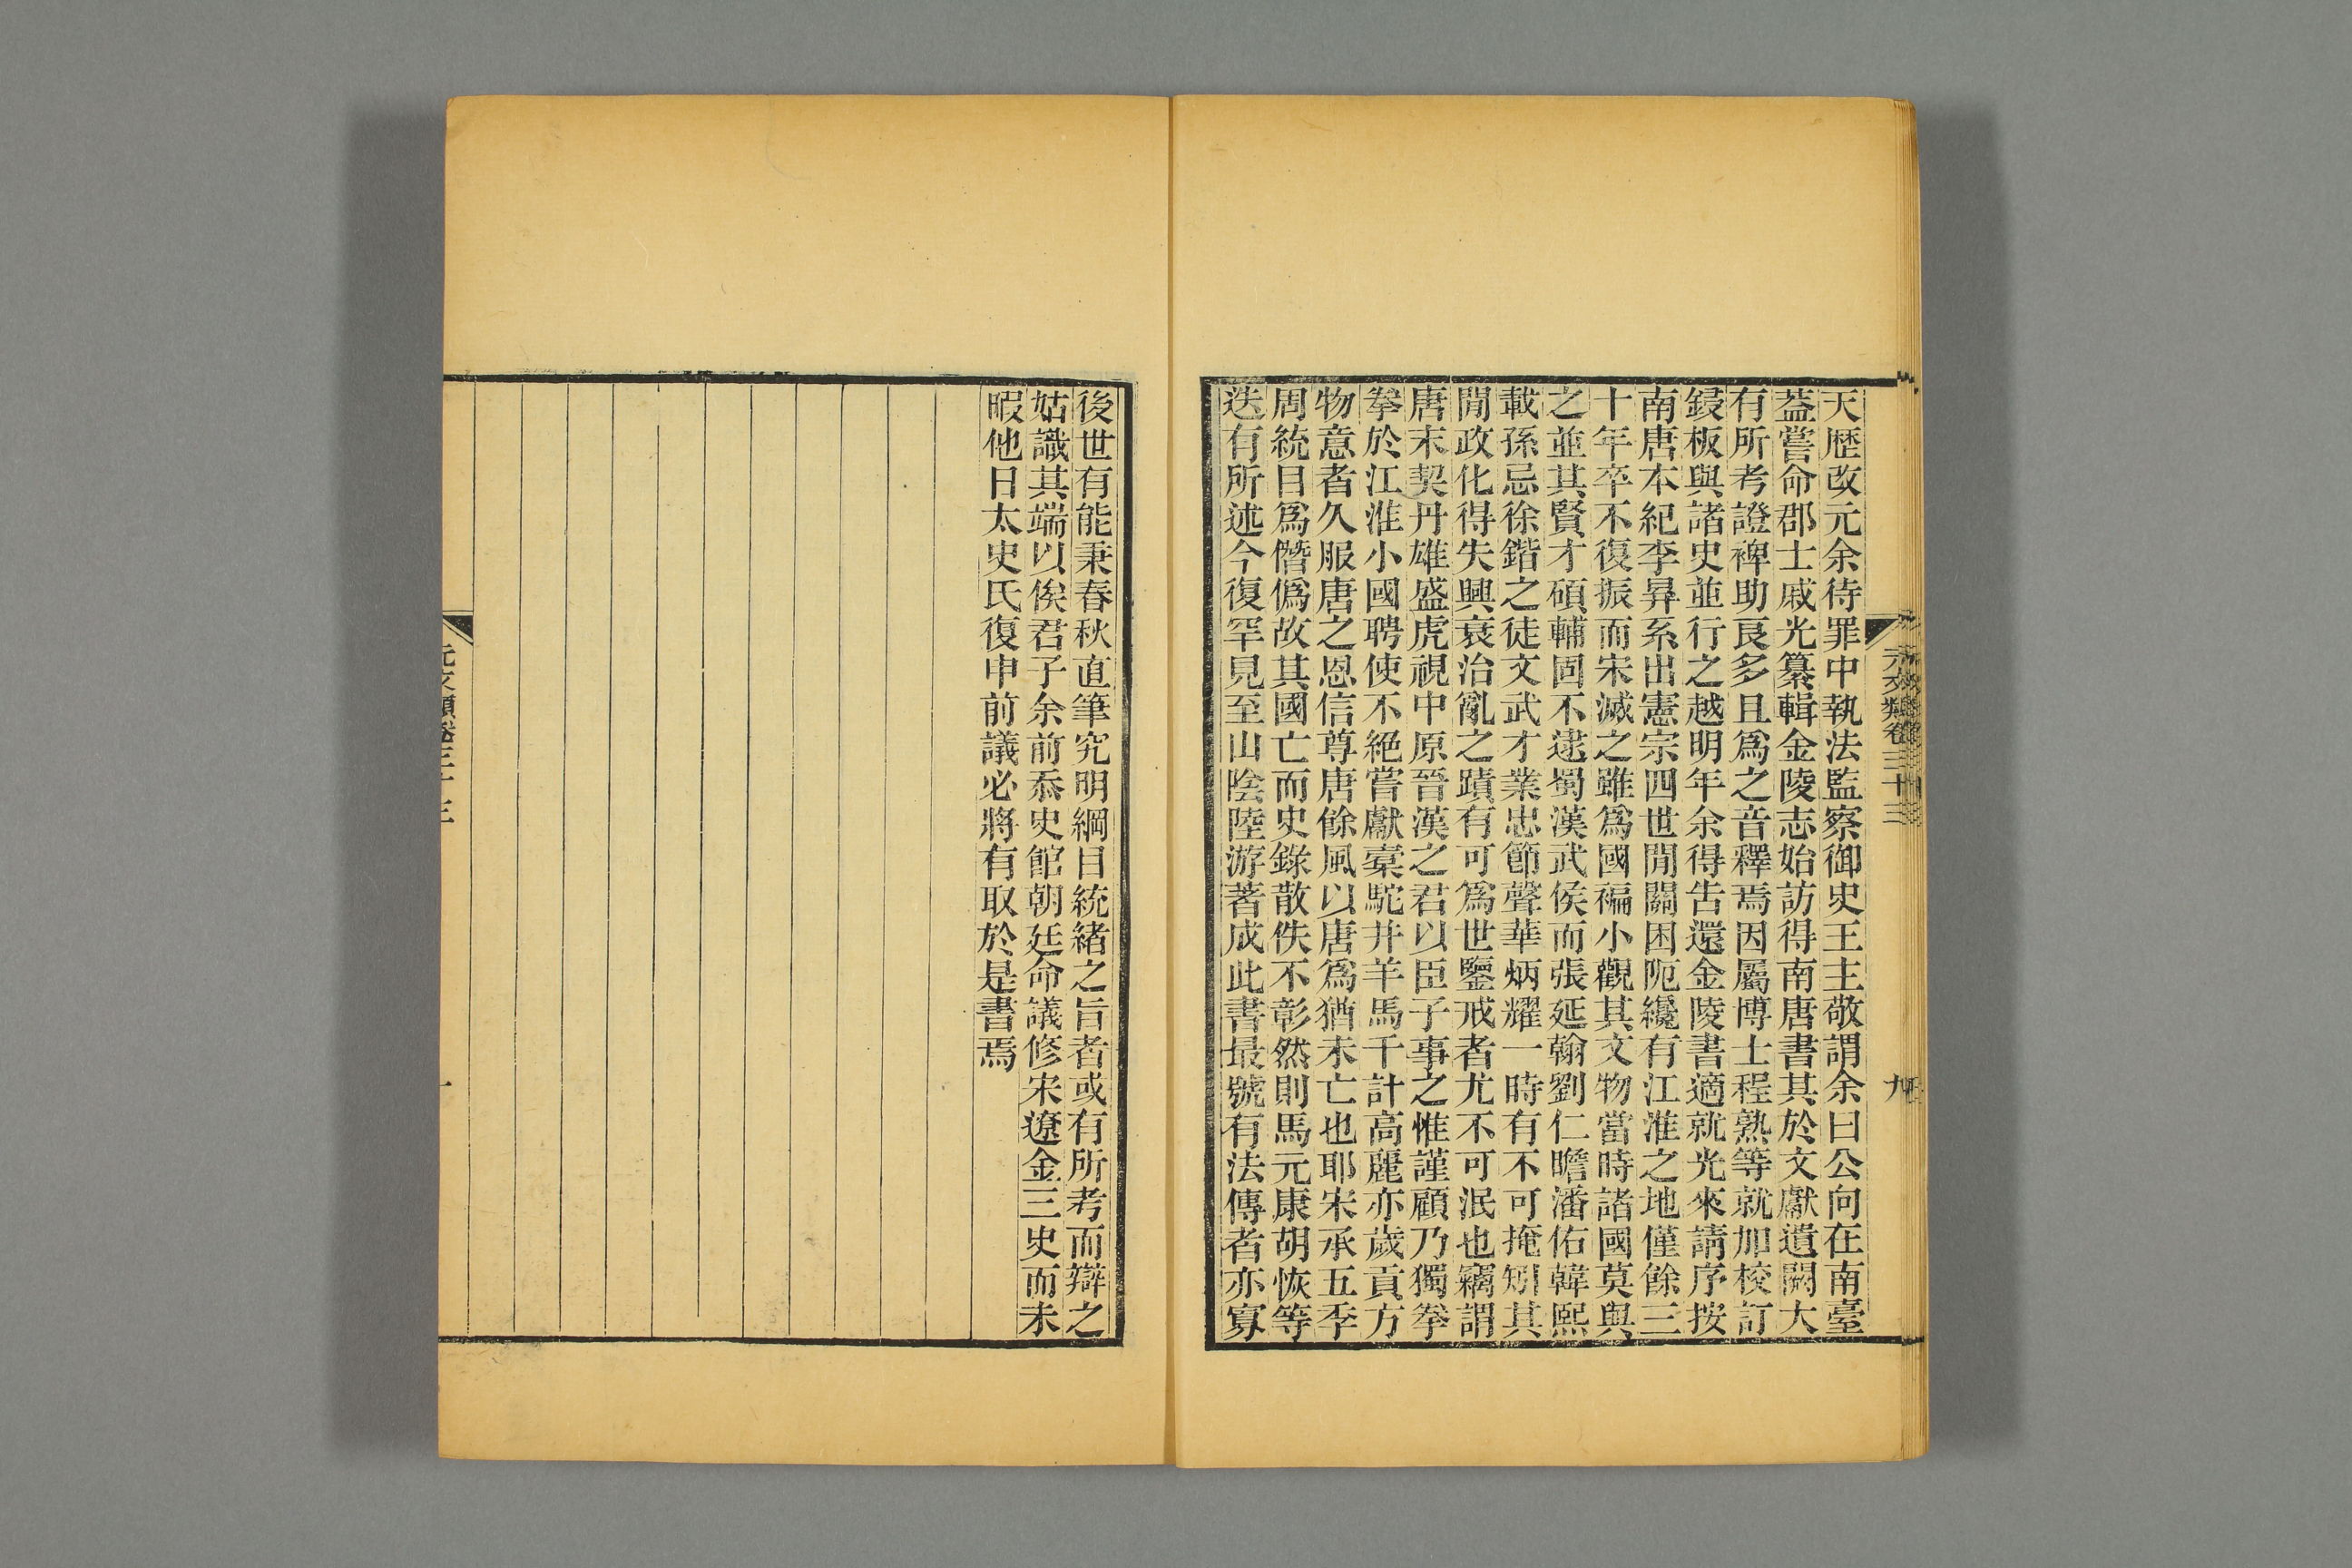 天歷改元余待罪中執法監察御史王主敬謂余曰公向在南臺
葢嘗命郡士戚光纂輯金陵志始訪得南唐書其於文獻遺闕大
有所考證裨助良多且爲之音釋焉因屬博士程熟等就加校訂
鋟板與諸史並行之越明年余得告還金陵書適就光來請序按
南唐本紀李昪系出憲宗四世間關困阨纔有江淮之地僅餘三
十年卒不復振而宋滅之雖爲國褊小觀其文物當時諸國莫與
之並其賢才碩輔固不逮蜀漢武侯而張延翰劉仁瞻潘佑韓熙
載孫忌徐鍇之徒文武才業忠節聲華炳耀一時有不可掩矧其
閒政化得失興衰治亂之蹟有可爲世鑒戒者尤不可泯也竊謂
唐末契丹雄盛虎視中原晉漢之君以臣子事之惟謹顧乃獨拳
拳於江淮小國聘使不絕嘗獻橐駝并羊馬千計高麗亦歲貢方
物意者久服唐之恩信尊唐餘風以唐爲猶未亡也耶宋承五季
周統目爲僭僞故其國亡而史錄散佚不彰然則馬元康胡恢等
迭有所述今復罕見至山陰陸游著成此書最號有法傳者亦寡
元文類卷三十三
九
後世有能秉春秋直筆究明綱目統緒之旨者或有所考而辯之
姑識其端以俟君子余前忝史館朝廷命議修宋遼金三史而未
暇他日太史氏復申前議必將有取於是書焉
元文類卷三十三